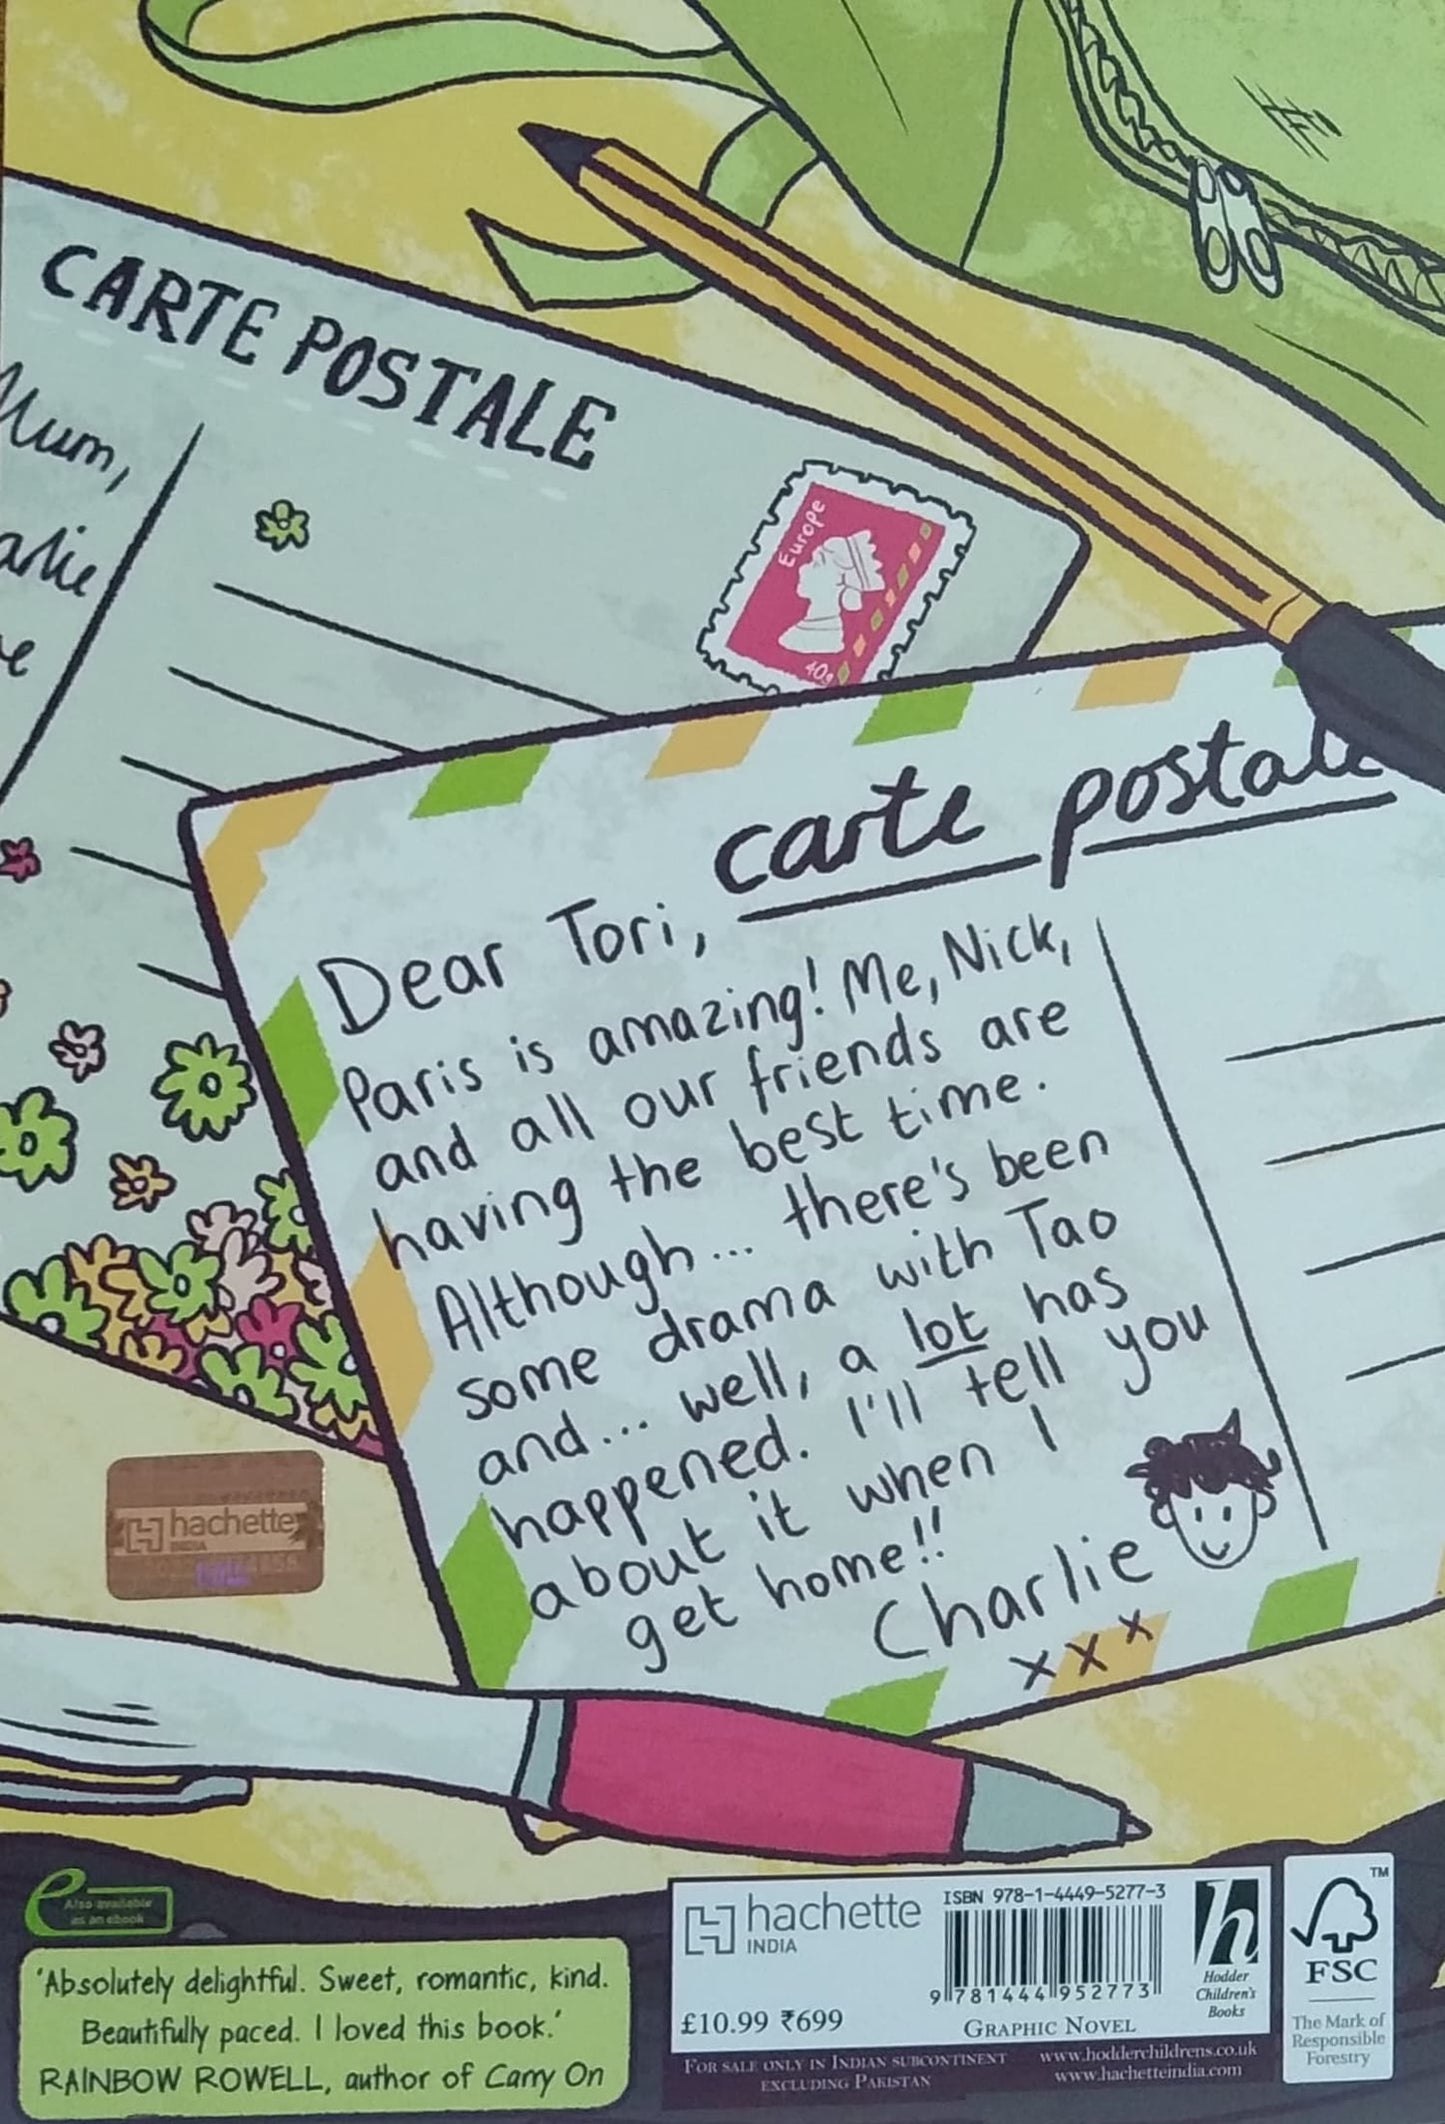 CARTE POSTALE
Mum,
Europe
40g
carte postale
Dear Tori,
Paris is amazing! Me, Nick,
and all our friends are
having the best time.
Although... there's been
some drama with Tao
and... well, a lot has
happened. I'll tell you
about it when I
get home!!
Charlie
x x x
hachette
INDIA
e
Also available
as an ebook
'Absolutely delightful. Sweet, romantic, kind.
Beautifully paced. I loved this book.'
RAINBOW ROWELL, author of Carry On
hachette
INDIA
£10.99 ₹699
ISBN 978-1-4449-5277-3
9 781444 952773
GRAPHIC NOVEL
h
Hodder
Children's
Books
FOR SALE ONLY IN INDIAN SUBCONTINENT
EXCLUDING PAKISTAN
www.hodderchildrens.co.uk
www.hachetteindia.com
TM
FSC
The Mark of
Responsible
Forestry